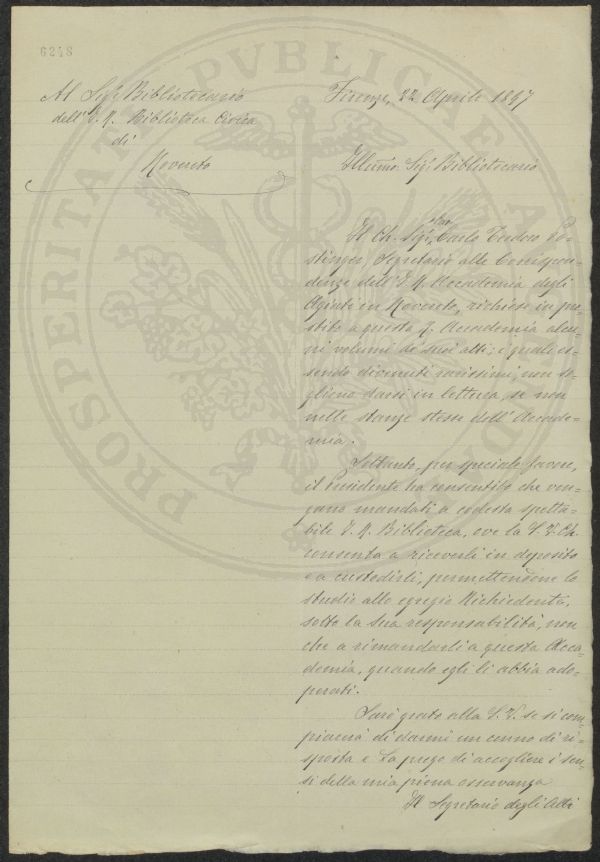 6248
Al Sigr. Bibliotecario
dell'I. R. Biblioteca Civica
di
Rovereto
Firenze, 22 Aprile 1897
Illumo. Sigr. Bibliotecario
Il Ch. Sigr. Carlo Teodoro Po-
stinger, Segretario alle Corrispon-
denze dell'I. R. Accademia degli
Agiati in Rovereto, richiese in pre-
stito a questa R. Accademia alcu-
ni volumi de' suoi atti; i quali es-
sendo divenuti rarissimi, non so-
gliono darsi in lettura, se non
nelle stanze stesse dell'Accade-
mia.
Soltanto, per speciale favore,
il Presidente ha consentito che ven-
gano mandati a codesta spetta-
bile I. R. Biblioteca, ove la S. V. Ch.
consenta a riceverli in deposito
e a custodirli, permettendone lo
studio allo egregio Richiedente,
sotto la sua responsabilità, non
che a rimandarli a questa Acca-
demia, quando egli li abbia ado-
perati.
Sarò grato alla S. V. se si com-
piacerà di darmi un cenno di ri-
sposta e La prego di accogliere i sen-
si della mia piena osservanza
Il Segretario degli Atti
PROSPERITATI PVBLICAE A